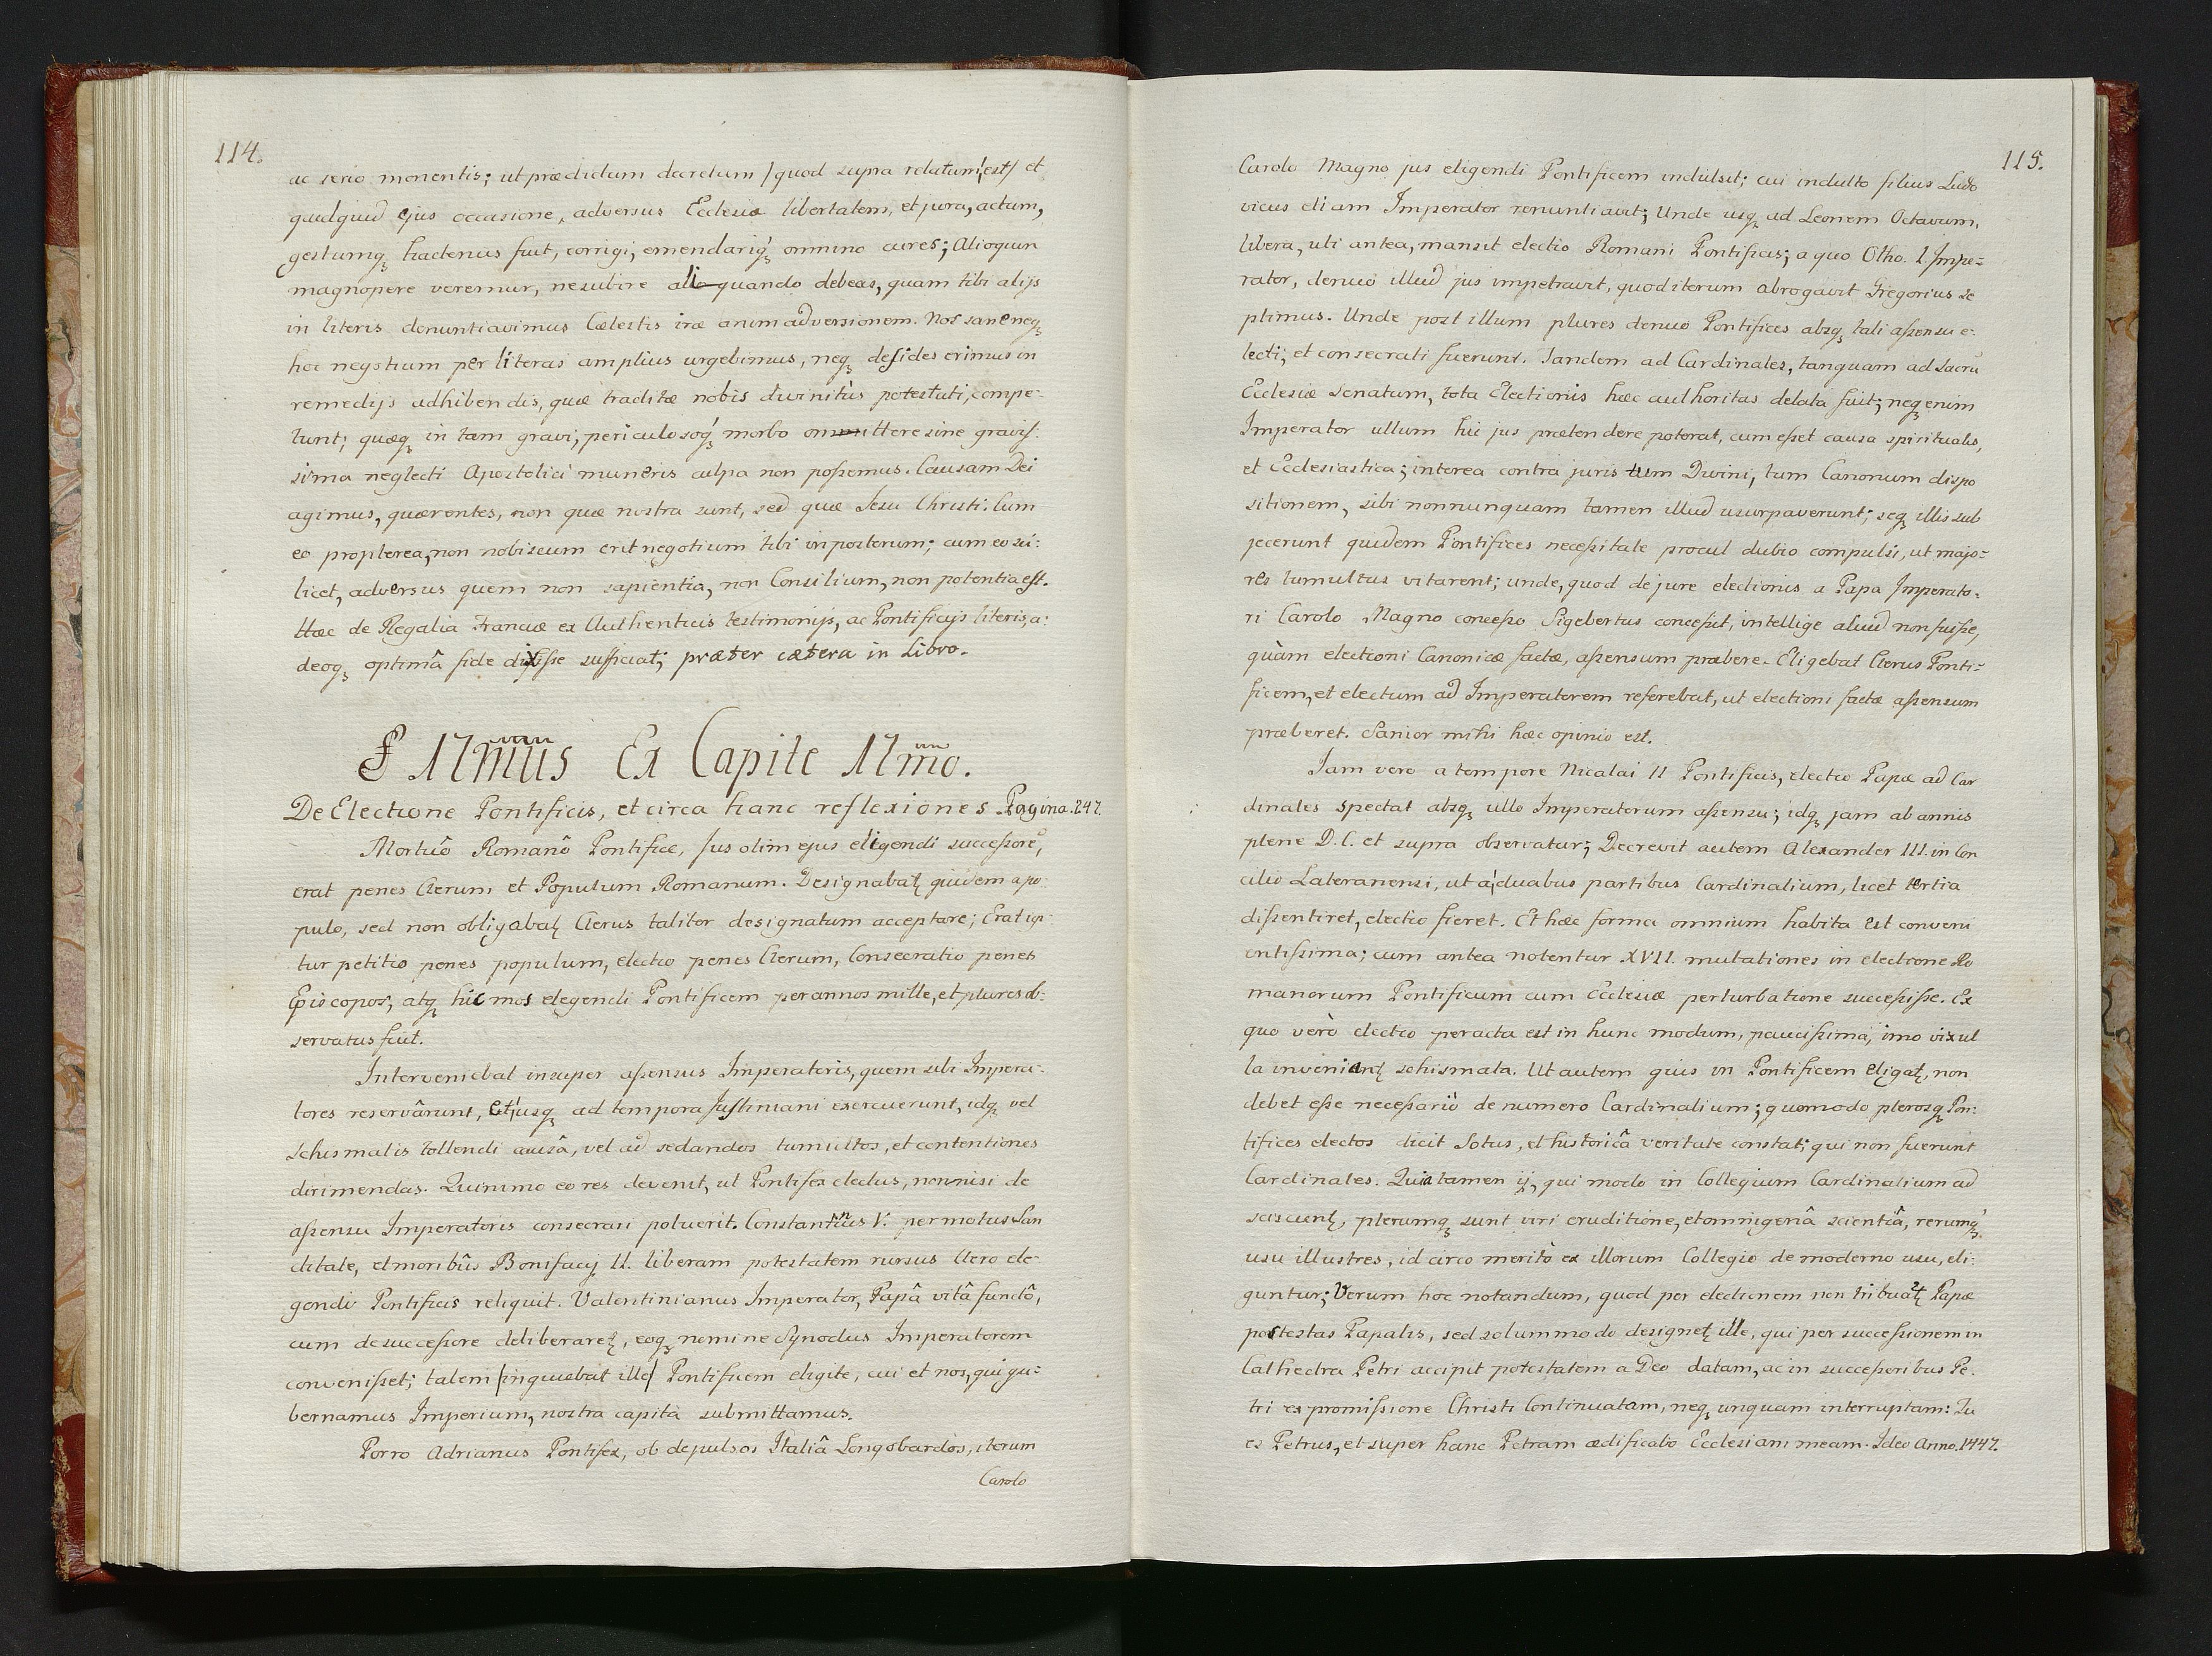 114.
ac serio monentis; ut prædictum decretum /quod supra relatum est/ et
quidquid ejus occasione, adversus Ecclesiæ libertatem, et jura, actum,
gestumqꝫ hactenus fuit, corrigi, emendariqꝫ omnino cures; Alioquin
magnopere veremur, ne subire aliquando debeas, quam tibi alijs
in literis denuntiavimus Cœlestis iræ animadversionem. Nos sane neqꝫ
hoc negotium per literas amplius urgebimus, neqꝫ desides erimus in
remedijs adhibendis, quæ traditæ nobis divinitùs potestati, compe-
tunt; quæqꝫ in tam gravi, periculosoqꝫ morbo omittere sine gravis-
sima neglecti Apostolici muneris culpa non possemus. Causam Dei
agimus, quærentes, non quæ nostra sunt, sed quæ Jesu Christi. Cum
eo propterea, non nobiscum erit negotium tibi in posterum; cum eo sci-
licet, adversus quem non sapientia, non Consilium, non potentia est.
Hæc de Regalia Franciæ ex Authenticis testimonijs, ac Pontificijs literis, a-
deoqꝫ optimâ fide dixisse sufficiat; præter cætera in Libro.
§ 17mus Ex Capite 17mo.
De Electione Pontificis, et circa hanc reflexiones. Pagina. 247.
Mortuô Romanô Pontifice, Jus olim ejus eligendi successorē,
erat penes Clerum et Populum Romanum. Designabatꝫ quidem a po-
pulo, sed non obligabatꝫ Clerus taliter designatum acceptare; Erat igi-
tur petitio penes populum, electio penes Clerum, Consecratio penes
Episcopos, atqꝫ hic mos elegendi Pontificem per annos mille, et plures ob-
servatus fuit.
Interveniebat insuper assensus Imperatoris, quem sibi Impera-
tores reservârunt, et usqꝫ ad tempora Justiniani exercuerunt, idqꝫ vel
schismatis tollendi causâ, vel ad sedandos tumultos, et contentiones
dirimendas. Quinimo eo res devenit, ut Pontifex electus, nonnisi de
assensu Imperatoris consecrari potuerit. Constantinus V. permotus San
ctitate, et moribûs Bonifacij II. liberam potestatem rursus Clero ele-
gendi Pontificis reliquit. Valentinianus Imperator, Papâ vitâ functô,
cum de successore deliberaretꝫ, eoqꝫ nomine Synodus Imperatorem
convenisset; talem /inquiebat ille/ Pontificem eligite, cui et nos, qui gu-
bernamus Imperium, nostra capita submittamus.
Porro Adrianus Pontifex, ob depulsos Italiâ Longobardos, iterum
Carolo
115.
Carolo Magno jus eligendi Pontificem indulsit; cui indulto filius Ludo
vicus etiam Imperator renuntiavit; Unde usqꝫ ad Leonem Octavum,
libera, uti antea, mansit electio Romani Pontificis; a quo Otho. I. Impe-
rator, denuò illud jus impetravit, quod iterum abrogavit Gregorius Se
ptimus. Unde post illum plures denuo Pontifices absqꝫ tali assensu e-
lecti, et consecrati fuerunt. Tandem ad Cardinales, tanquam ad Sacrū
Ecclesiæ Senatum, tota Electionis hæc authoritas delata fuit; neqꝫ enim
Imperator ullum hic jus prætendere poterat, cum esset causa spiritualis,
et Ecclesiastica; interea contra juris tum Divini, tum Canonum dispo
sitionem, sibi nonnunquam tamen illud usurpaverunt; seqꝫ illis sub
jecerunt quidem Pontifices necessitate procul dubio compulsi, ut majo-
res tumultus vitarent; unde, quod de jure electionis a Papa Imperato-
ri Carolo Magno concesso Sigebertus concessit, intellige aliud non fuisse,
quàm electioni Canonicæ factæ, assensum præbere. Eligebat Clerus Ponti-
ficem, et electum ad Imperatorem referebat, ut electioni factæ assensum
præberet. Sanior mihi hæc opinio est.
Jam vero a tempore Nicalai II Pontificis, electio Papæ ad Car
dinales spectat absqꝫ ullo Imperatorum assensu; idqꝫ jam ab annis
plene D.C. et supra observatur; Decrevit autem Alexander III. in Con
cilio Lateranensi, ut a duabus partibus Cardinalium, licet tertia
dissentiret, electio fieret. Et hæc forma omnium habita est conveni
entissima; cum antea notentur XVII. mutationes in electione Ro
manorum Pontificum cum Ecclesiæ perturbatione successisse. Ex
quo verò electio peracta est in hunc modum, paucissima, imo vix ul
la inveniuntꝫ schismata. Ut autem quis in Pontificem eligatꝫ, non
debet esse necessariò de numero Cardinalium; quomodo plerosqꝫ Pon-
tifices electos dicit Sotus, et historicâ veritate constat; qui non fuerunt
Cardinales. Quia tamen ij, qui modo in Collegium Cardinalium ad
sciscuntꝫ, plerumqꝫ sunt viri eruditione, et omnigenâ scientiâ, rerumqꝫ
usu illustres, id circo meritò ex illorum Collegio de moderno usu, eli-
guntur; Verum hoc notandum, quod per electionem non tribuatꝫ Papæ
postestas Papalis, sed solummodo designetꝫ ille, qui per successionem in
Cathedra Petri accipit potestatem a Deo datam, ac in successoribus Pe-
tri ex promissione Christi Continuatam, neqꝫ unquam interruptam: Tu
es Petrus, et super hanc Petram ædificabo Ecclesiam meam. Ideo Anno. 1447.